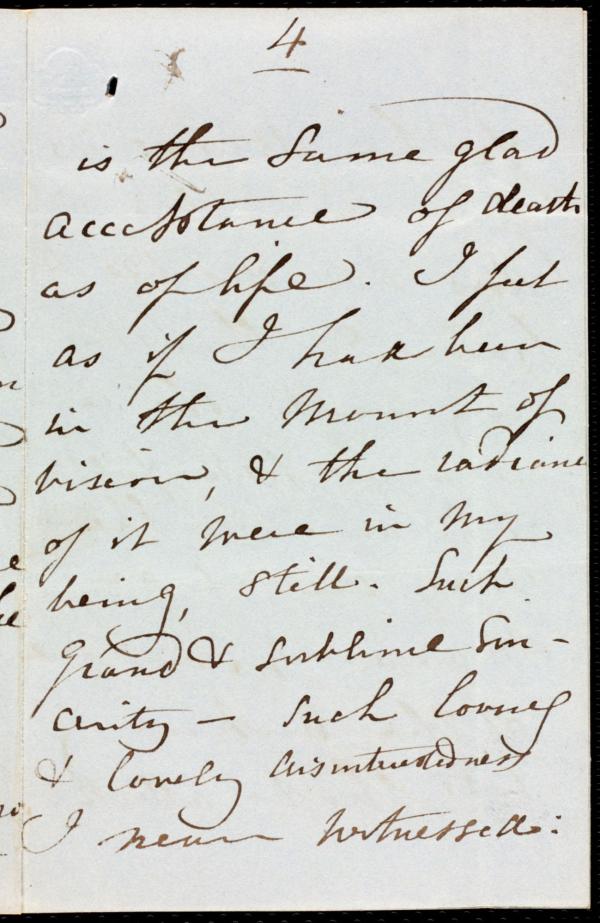 4
is the same glad
acceptance of death
as of life. I feel
as if I had been
in the Mount of
vision, & the radiance
of it were in my
being, still. Such
grand & sublime sin-
cerity — such loving
& lovely disinterestedness
I never witnessed.